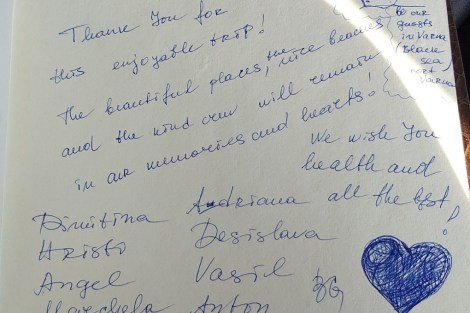 Thank You for
this enjoyable trip!
The beautiful places, the nice beaches
and the kind crew will remain
in our memories and hearts!
We wish You
health and
all the best!
be our
guests
in Varna
(Black
sea,
port
Varna)
Dimitrina Andriana
Hristo Desislava
Angel Vasil
Anton
BG